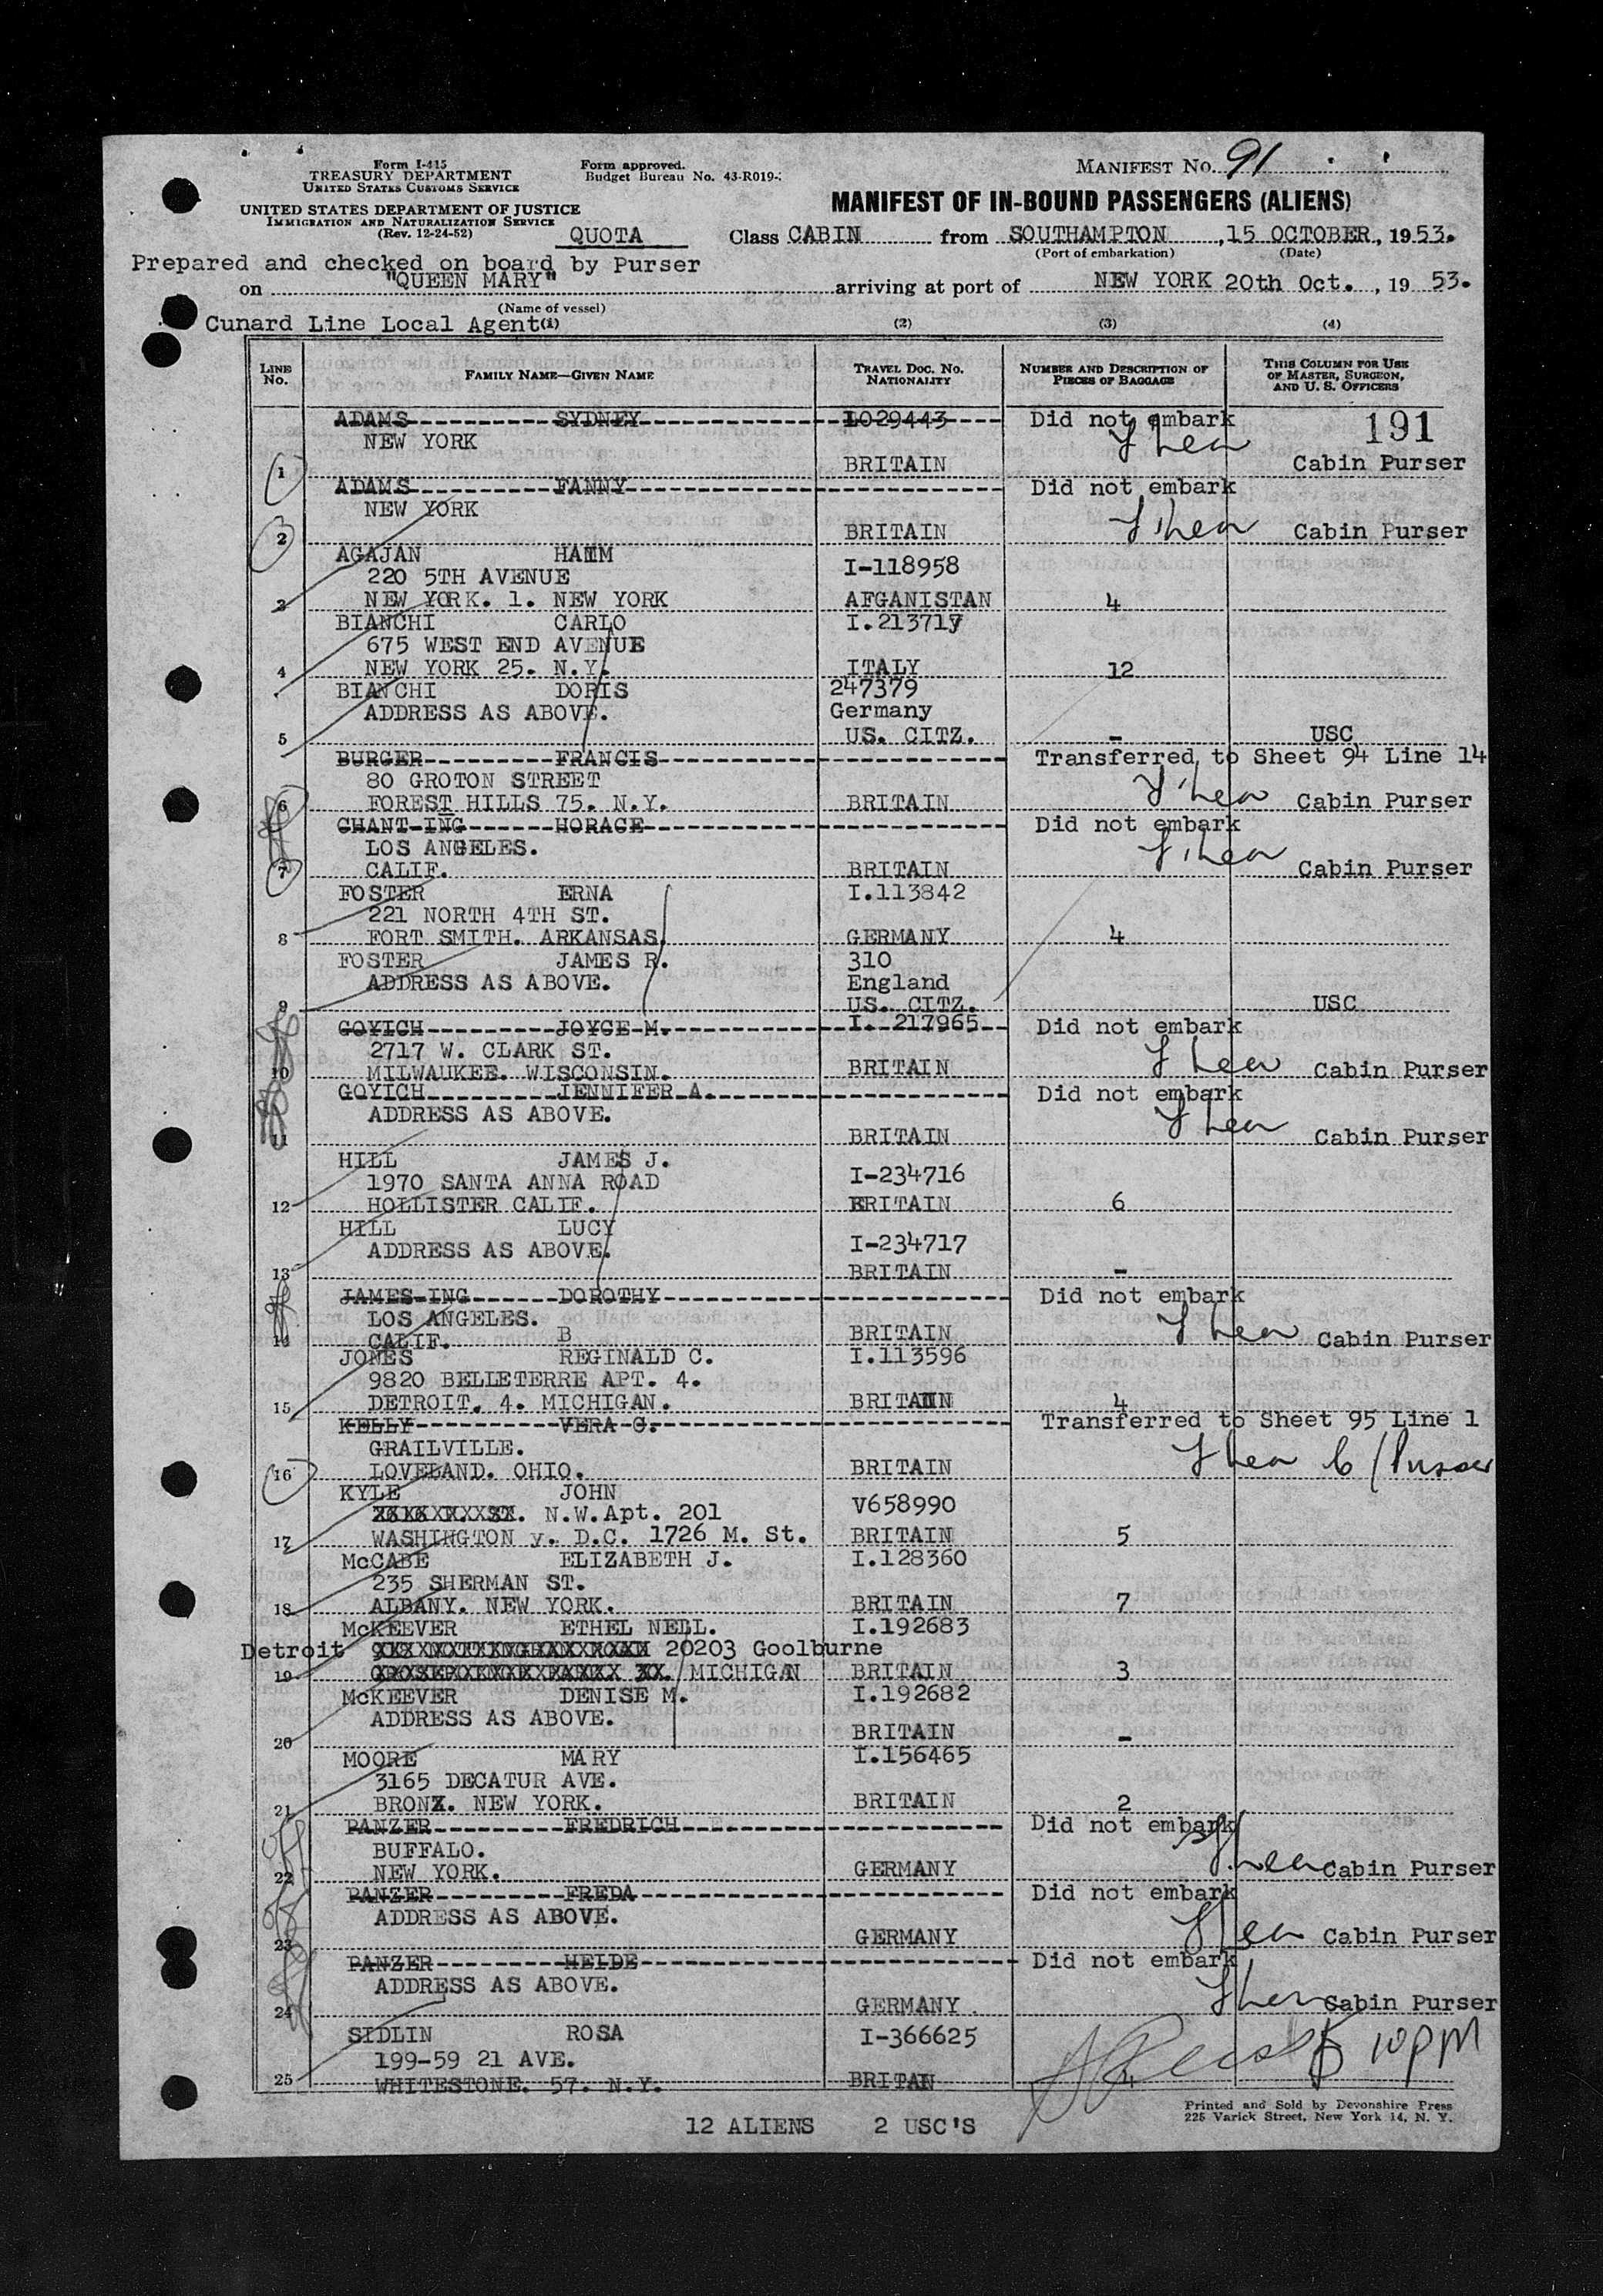 Form I-415
TREASURY DEPARTMENT
UNITED STATES CUSTOMS SERVICE
Form approved.
Budget Bureau No. 43-R019-
MANIFEST No. 91
UNITED STATES DEPARTMENT OF JUSTICE
IMMIGRATION AND NATURALIZATION SERVICE
(Rev. 12-24-52)
MANIFEST OF IN-BOUND PASSENGERS (ALIENS)
QUOTA Class CABIN from SOUTHAMPTON, 15 OCTOBER, 1953.
(Port of embarkation) (Date)
Prepared and checked on board by Purser
on "QUEEN MARY" arriving at port of NEW YORK 20th Oct., 19 53.
(Name of vessel)
Cunard Line Local Agent (1) (2) (3) (4)
LINE No. FAMILY NAME—GIVEN NAME TRAVEL DOC. No. NATIONALITY NUMBER AND DESCRIPTION OF PIECES OF BAGGAGE THIS COLUMN FOR USE OF MASTER, SURGEON, AND U. S. OFFICERS
ADAMS SYDNEY I029443 Did not embark 191
NEW YORK
1 BRITAIN Cabin Purser
ADAMS FANNY Did not embark
NEW YORK
2 BRITAIN Cabin Purser
AGAJAN I-118958
220 5TH AVENUE
3 NEW YORK. 1. NEW YORK AFGANISTAN 4
BIANCHI CARLO I.213717
675 WEST END AVENUE
4 NEW YORK 25. N.Y. ITALY 12
BIANCHI DORIS 247379
ADDRESS AS ABOVE. Germany
5 US. CITZ. - USC
BURGER FRANCIS Transferred to Sheet 94 Line 14
80 GROTON STREET
6 FOREST HILLS 75. N.Y. BRITAIN Cabin Purser
CHANT-ING HORACE Did not embark
LOS ANGELES.
7 CALIF. BRITAIN Cabin Purser
FOSTER ERNA I.113842
221 NORTH 4TH ST.
8 FORT SMITH. ARKANSAS. GERMANY 4
FOSTER JAMES R. 310
ADDRESS AS ABOVE. England
9 US. CITZ. USC
GOYICH JOYCE M. I. 217965 Did not embark
2717 W. CLARK ST.
10 MILWAUKEE. WISCONSIN. BRITAIN Cabin Purser
GOYICH JENNIFER A. Did not embark
ADDRESS AS ABOVE.
11 BRITAIN Cabin Purser
HILL JAMES J. I-234716
1970 SANTA ANNA ROAD
12 HOLLISTER CALIF. BRITAIN 6
HILL LUCY I-234717
ADDRESS AS ABOVE.
13 BRITAIN -
JAMES-ING DOROTHY Did not embark
LOS ANGELES.
14 CALIF. B BRITAIN Cabin Purser
JONES REGINALD C. I.113596
9820 BELLETERRE APT. 4.
15 DETROIT. 4. MICHIGAN. BRITAIN 4
KELLY VERA C. Transferred to Sheet 95 Line 1
GRAILVILLE.
16 LOVELAND. OHIO. BRITAIN C/Purser
KYLE JOHN V658990
N.W.Apt. 201
17 WASHINGTON y. D.C. 1726 M. St. BRITAIN 5
McCABE ELIZABETH J. I.128360
235 SHERMAN ST.
18 ALBANY. NEW YORK. BRITAIN 7
McKEEVER ETHEL NELL. I.192683
Detroit 20203 Goolburne
19 MICHIGAN BRITAIN 3
McKEEVER DENISE M. I.192682
ADDRESS AS ABOVE.
20 BRITAIN -
MOORE MARY I.156465
3165 DECATUR AVE.
21 BRONX. NEW YORK. BRITAIN 2
PANZER FREDRICH Did not embark
BUFFALO.
22 NEW YORK. GERMANY Cabin Purser
PANZER FREDA Did not embark
ADDRESS AS ABOVE.
23 GERMANY Cabin Purser
PANZER HEIDE Did not embark
ADDRESS AS ABOVE.
24 GERMANY Cabin Purser
SIDLIN ROSA I-366625
199-59 21 AVE. 10PM
25 WHITESTONE. 57. N.Y. BRITAIN
12 ALIENS 2 USC'S
Printed and Sold by Devonshire Press
225 Varick Street, New York 14, N. Y.